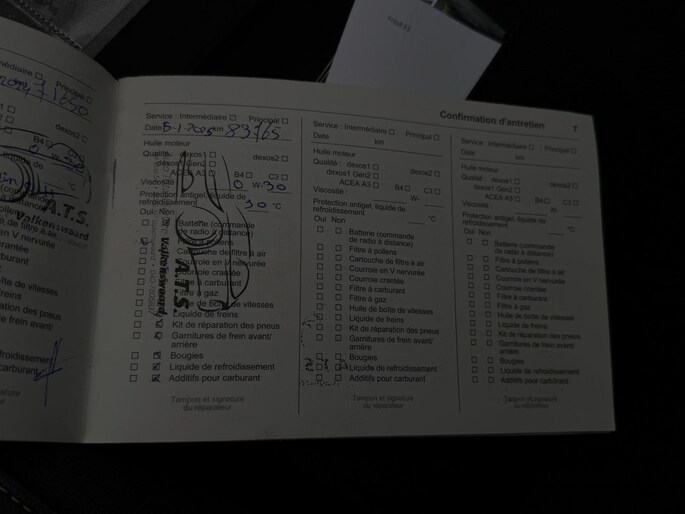 Confirmation d'entretien
7
médiaire Principal
71650
dexos2
B4 C3
A.T.S.
Valkenswaard
de filtre à air
n V nervurée
crantée
carburant
de boîte de vitesses
freins
ration des pneus
de frein avant/
froidissement
carburant
signature
Service : Intermédiaire Principal
Date 5-1-2025 km 83765
Huile moteur
Qualité : dexos1 dexos2
dexos1 Gen2
ACEA A3 B4 C3
Viscosité 0 W-30
Protection antigel, liquide de
refroidissement 30 °C
Oui Non
Batterie (commande
de radio à distance)
Filtre à pollens
Cartouche de filtre à air
Courroie en V nervurée
Courroie crantée
Filtre à carburant
Filtre à gaz
Huile de boîte de vitesses
Liquide de freins
Kit de réparation des pneus
Garnitures de frein avant/
arrière
Bougies
Liquide de refroidissement
Additifs pour carburant
A.T.S.
Valkenswaard
Tampon et signature
du réparateur
Service : Intermédiaire Principal
Date km
Huile moteur
Qualité : dexos1 dexos2
dexos1 Gen2
ACEA A3 B4 C3
Viscosité : W-
Protection antigel, liquide de
refroidissement °C
Oui Non
Batterie (commande
de radio à distance)
Filtre à pollens
Cartouche de filtre à air
Courroie en V nervurée
Courroie crantée
Filtre à carburant
Filtre à gaz
Huile de boîte de vitesses
Liquide de freins
Kit de réparation des pneus
Garnitures de frein avant/
arrière
Bougies
Liquide de refroidissement
Additifs pour carburant
Tampon et signature
du réparateur
Service : Intermédiaire Principal
Date km
Huile moteur
Qualité : dexos1 dexos2
dexos1 Gen2
ACEA A3 B4 C3
Viscosité : W-
Protection antigel, liquide de
refroidissement °C
Oui Non
Batterie (commande
de radio à distance)
Filtre à pollens
Cartouche de filtre à air
Courroie en V nervurée
Courroie crantée
Filtre à carburant
Filtre à gaz
Huile de boîte de vitesses
Liquide de freins
Kit de réparation des pneus
Garnitures de frein avant/
arrière
Bougies
Liquide de refroidissement
Additifs pour carburant
Tampon et signature
du réparateur